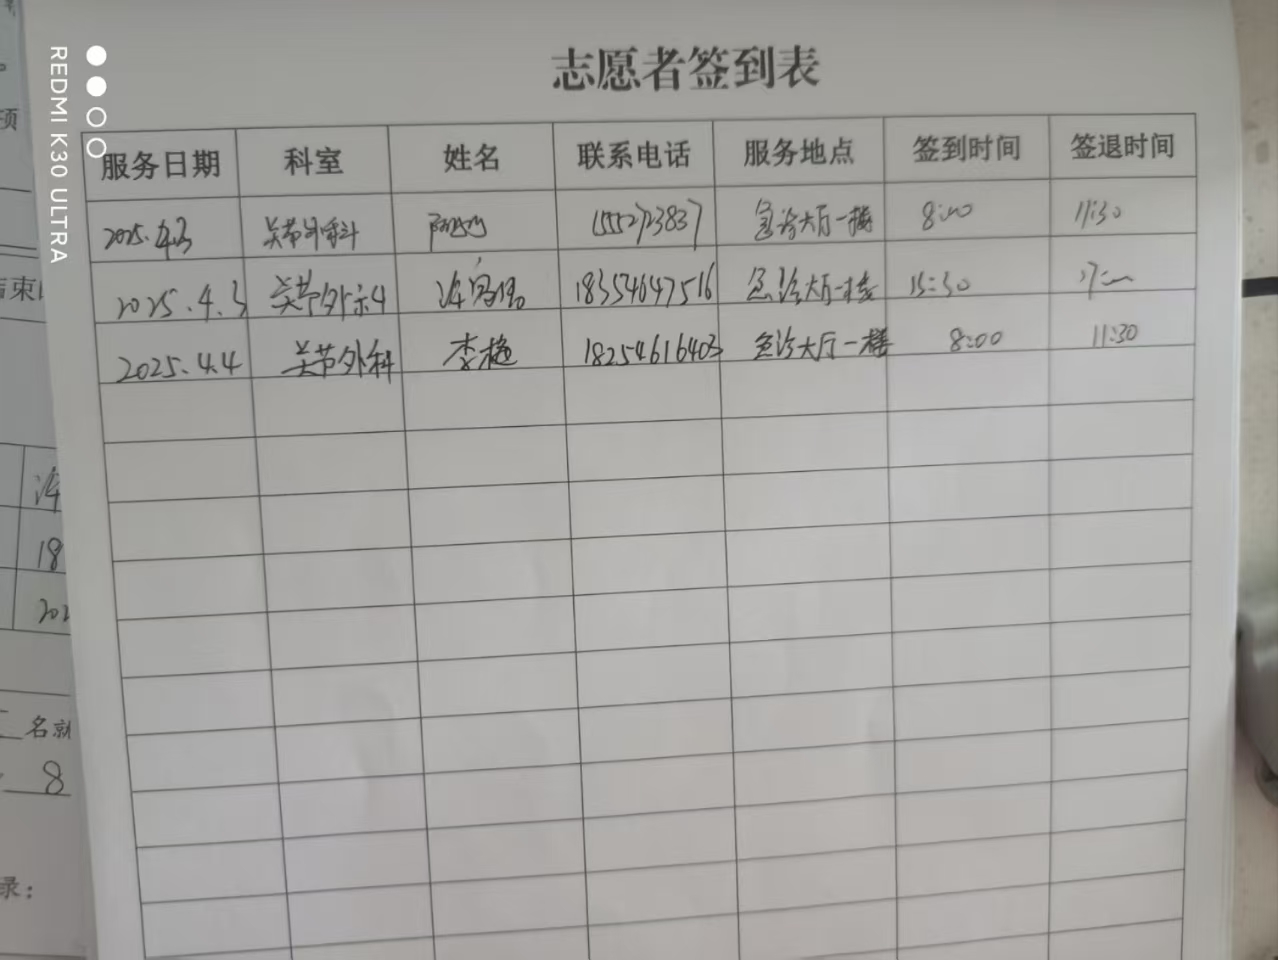 REDMI K30 ULTRA
志愿者签到表
服务日期 科室 姓名 联系电话 服务地点 签到时间 签退时间
2025.4.3 关节外科 15552723837 急诊大厅一楼 8:00 11:30
2025.4.3 关节外科 18354647516 急诊大厅一楼 15:30 17:00
2025.4.4 关节外科 李艳 18254616403 急诊大厅一楼 8:00 11:30
项
结束
18
202
名就
8
录：